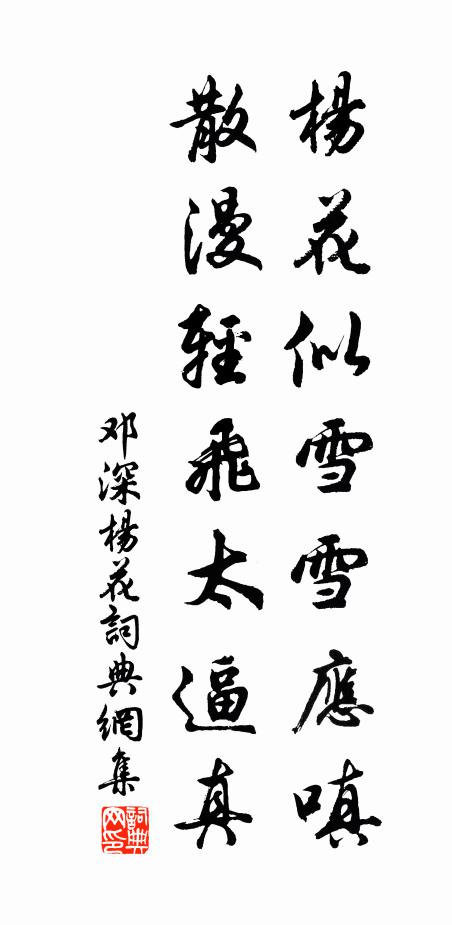 楊花似雪雪應嗔
散漫輕飛太逼真
邓深楊花詞典網集
詞典网印